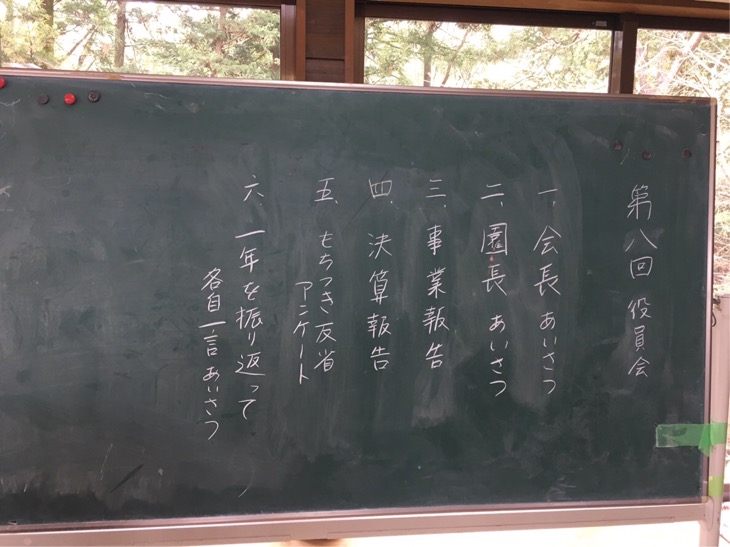 第八回 役員会
一、会長 あいさつ
二、園長 あいさつ
三、事業報告
四、決算報告
五、もちつき反省
アンケート
六、一年を振り返って
各自一言あいさつ